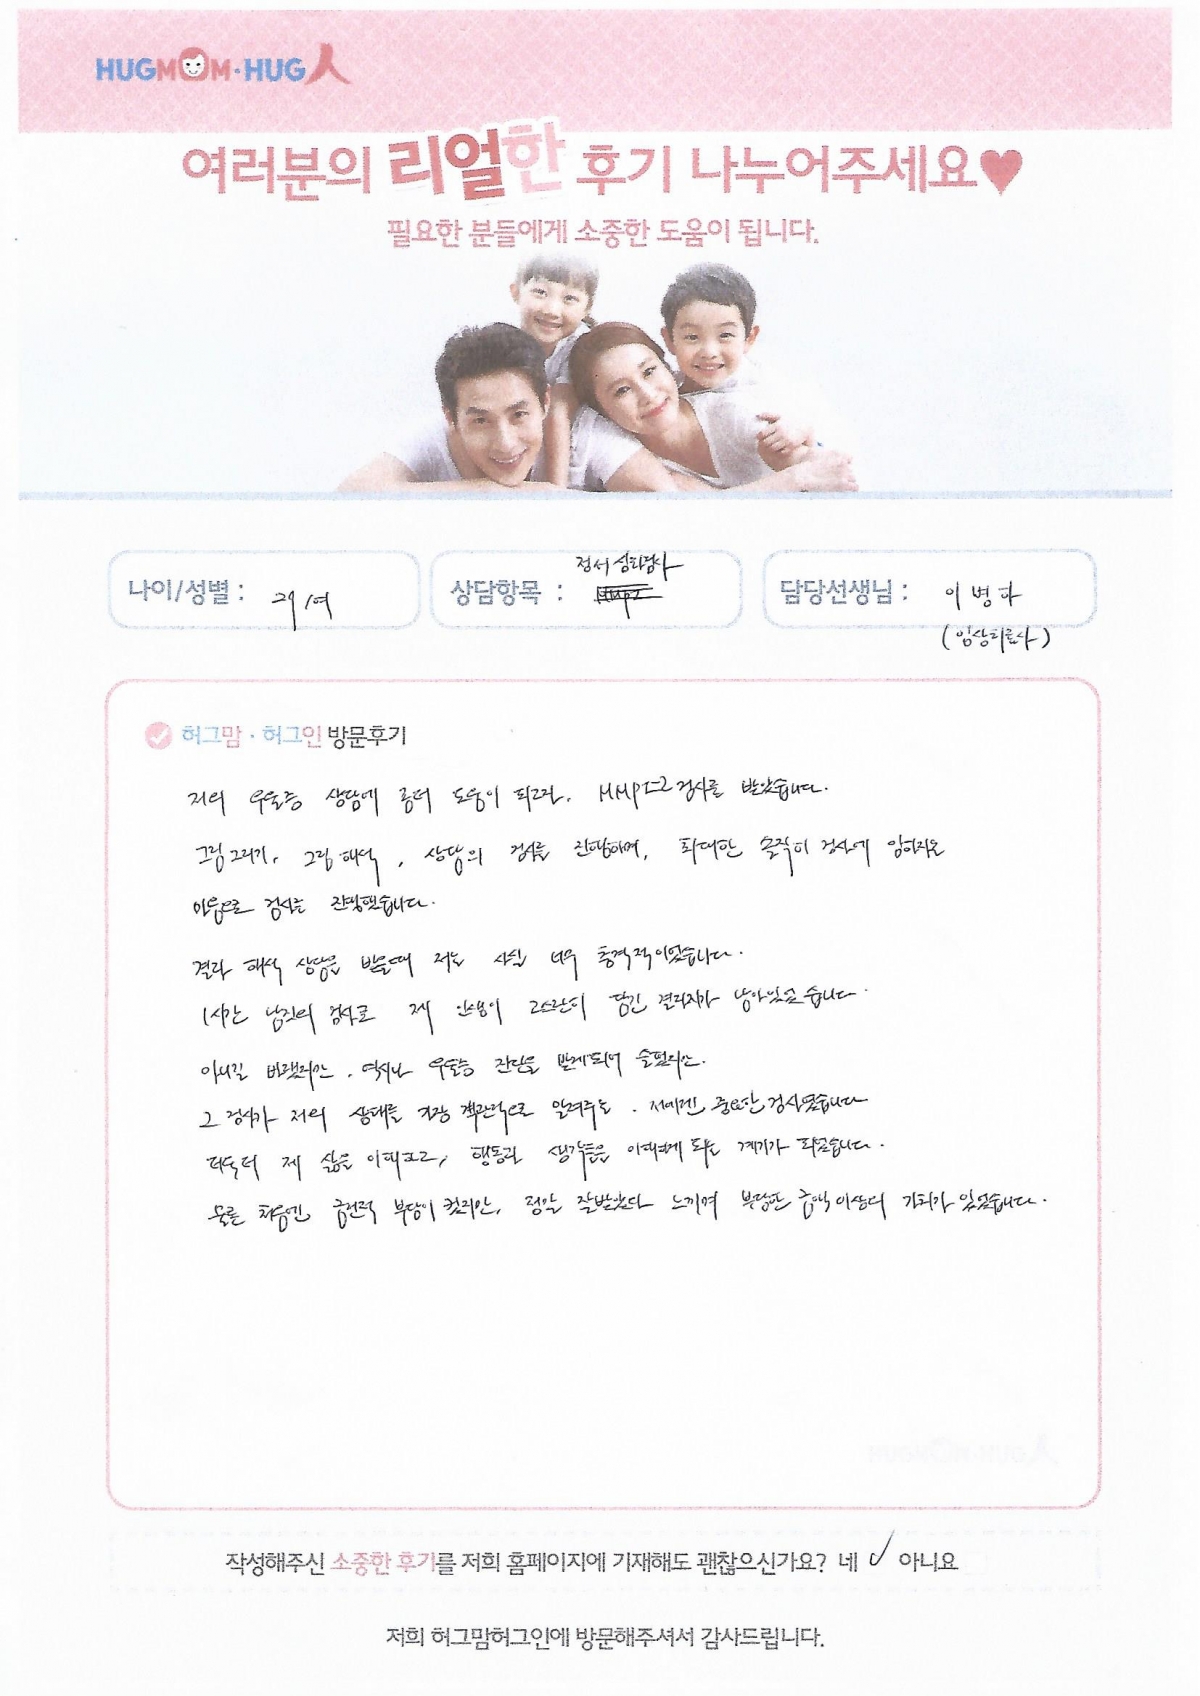 HUGMOM·HUG人
여러분의 리얼한 후기 나누어주세요♥
필요한 분들에게 소중한 도움이 됩니다.
나이/성별 : 29/여
상담항목 : 정서 심리검사
담당선생님 :
허그맘·허그인 방문후기
저의 우울증 상담에 좀더 도움이 되고자, MMPI-2 검사를 받았습니다.
그림그리기, 그림해석, 상담의 검사를 진행하며, 최대한 솔직히 검사에 임하자는
마음으로 검사를 진행했습니다.
결과 해석 상담을 받을때 저는 사실 너무 충격적이었습니다.
1시간 남짓의 검사로 제 인생이 고스란히 담긴 결과지가
아니길 바랬지만, 역시나 우울증 진단을 받게되어 슬펐지만.
그 검사가 저의 상태를 가장 객관적으로 알려주는, 저에겐 중요한 검사였습니다
더욱더 제 삶을 이해하고, 행동과 생각들을 이해하게 되는 계기가 되었습니다.
물론 처음엔 금전적 부담이 컸지만, 정말 잘받았다 느끼며 부담한 금액 이상의 가치가 있었습니다.
작성해주신 소중한 후기를 저희 홈페이지에 기재해도 괜찮으신가요? 네 ✓ 아니요
저희 허그맘허그인에 방문해주셔서 감사드립니다.